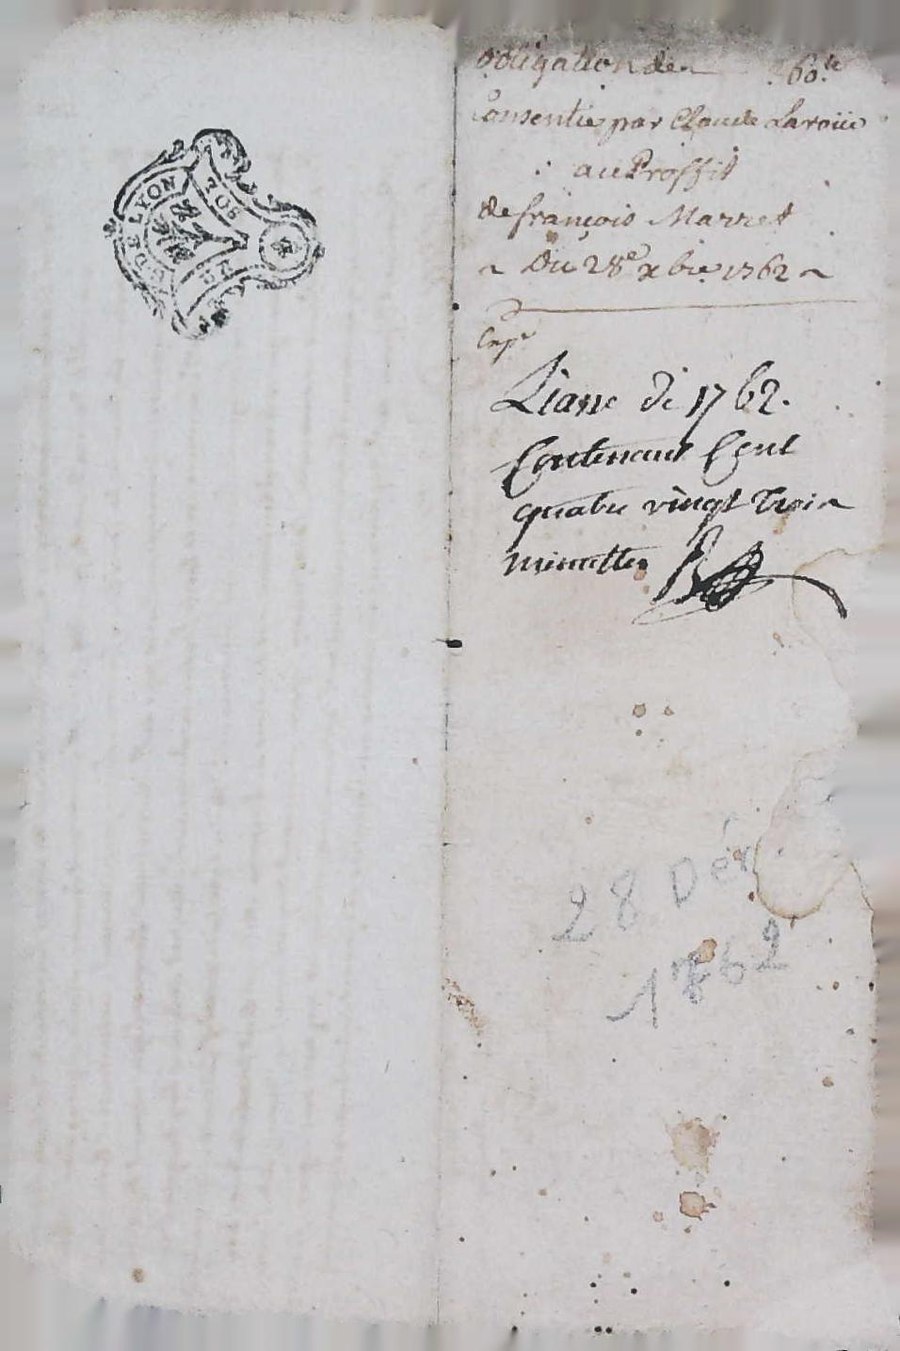 DE LYON
SOL
obligation de 60ˡᵗ
Consentie par Claude Laroüe
au Proffit
de françois Marret
Du 28ᵉ xbre 1762
Expᵉ
Liasse de 1762.
Contenant Cent
quatre vingt Trois
minuttes
28 Déc
1762